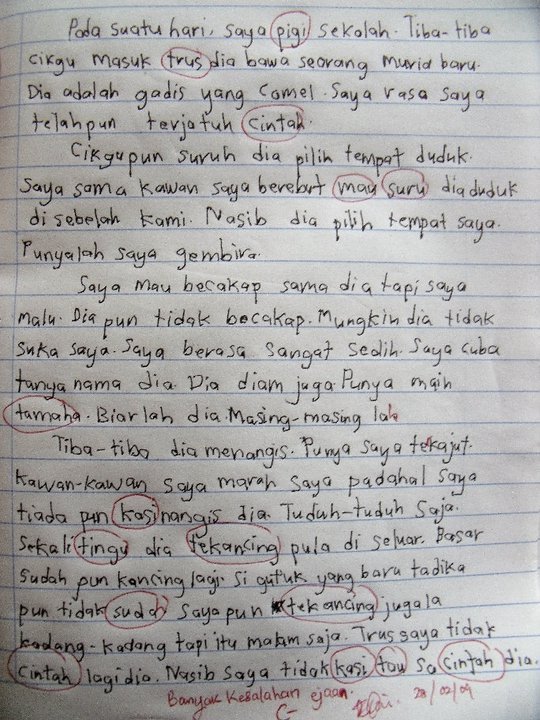 Pada suatu hari, saya pigi sekolah. Tiba-tiba
cikgu masuk trus dia bawa seorang murid baru.
Dia adalah gadis yang comel. Saya rasa saya
telahpun terjatuh cintah.
Cikgupun suruh dia pilih tempat duduk.
Saya sama kawan saya berebut mau suru dia duduk
di sebelah kami. Nasib dia pilih tempat saya.
Punyalah saya gembira.
Saya mau becakap sama dia tapi saya
malu. Dia pun tidak becakap. Mungkin dia tidak
suka saya. Saya berasa sangat sedih. Saya cuba
tanya nama dia. Dia diam juga. Punya main
tamaha. Biarlah dia. Masing-masing lah.
Tiba-tiba dia menangis. Punya saya tekajut.
Kawan-kawan saya marah saya padahal saya
tiada pun kasi nangis dia. Tuduh-tuduh saja.
Sekali tingu dia tekancing pula di seluar. Basar
sudah pun kancing lagi. Si gutuk yang baru tadika
pun tidak sudah. Saya pun tekancing jugala
kadang-kadang tapi itu malam saja. Trus saya tidak
cintah lagi dia. Nasib saya tidak kasi tau sa cintah dia.
Banyak kesalahan ejaan.
C-
28/02/09